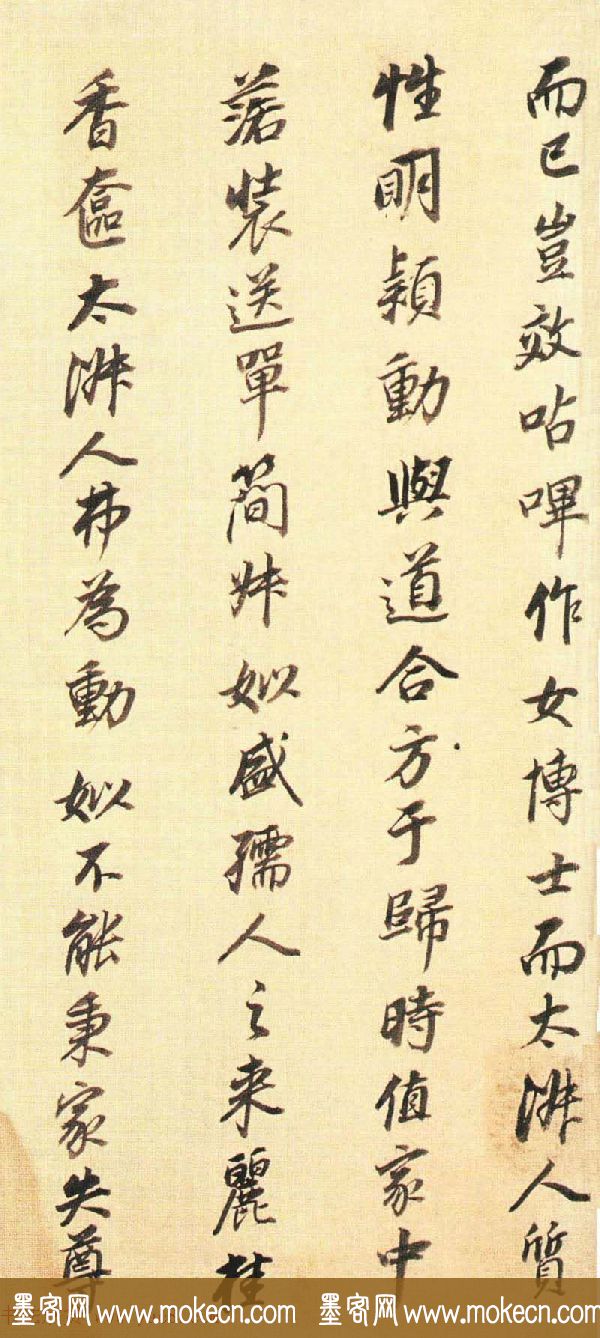 而已豈效呫嗶作女博士而太淑人質
性明穎動與道合方于歸時值家中
落裝送單簡叔姒盛孺人之来麗桂
香奩太淑人弗為動姒不能秉家失尊
墨客网 www.mokecn.com 墨客网 www.mokecn.com